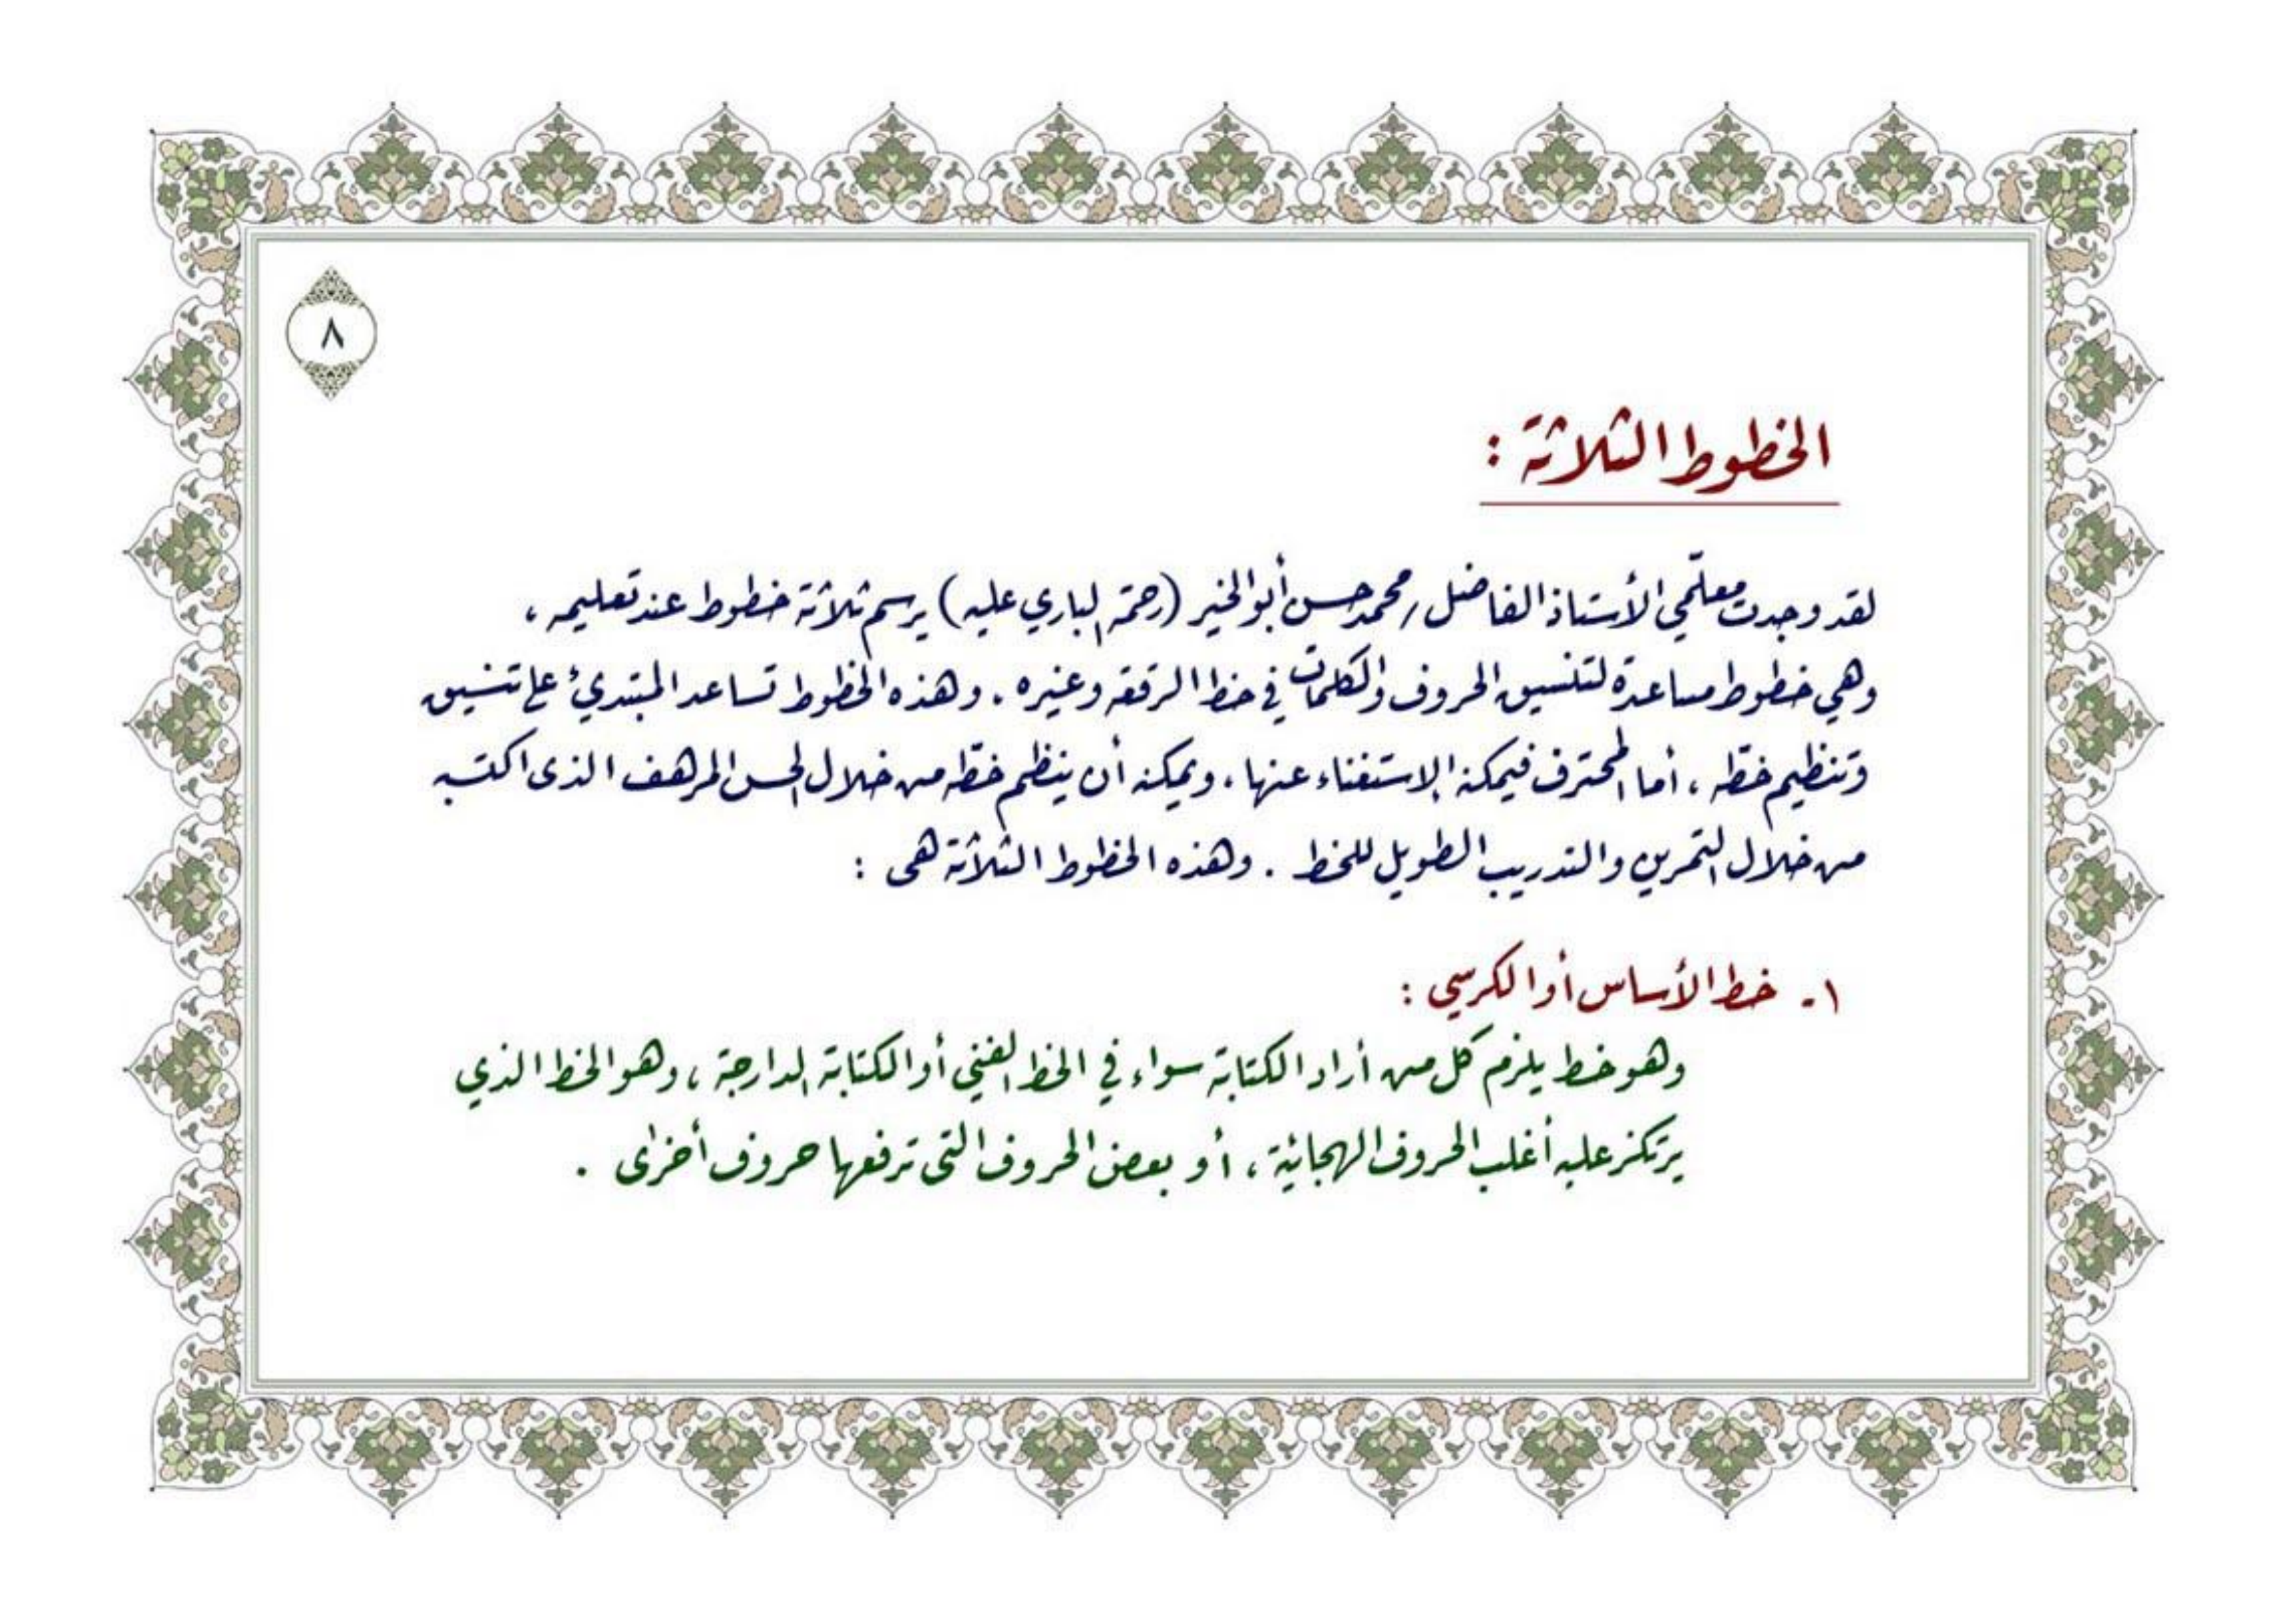 ٨
الخطوط الثلاثة :
لقد وجدت معلّمي الأستاذ الفاضل / محمد حسن أبو الخير (رحمة الباري عليه) يرسم ثلاثة خطوط عند تعليمه ،
وهي خطوط مساعدة لتنسيق الحروف والكلمات في خط الرقعة وغيره . وهذه الخطوط تساعد المبتدئ على تنسيق
وتنظيم خطّه ، أما المحترف فيمكنه الاستغناء عنها ، ويمكنه أن ينظم خطّه من خلال الحس المرهف الذى اكتسبه
من خلال التمرين والتدريب الطويل للخط . وهذه الخطوط الثلاثة هى :
١ - خط الأساس أو الكرسي :
وهو خط يلزم كل من أراد الكتابة سواء في الخط الفني أو الكتابة الدارجة ، وهو الخط الذي
يرتكز عليه أغلب الحروف الهجائية ، أو بعض الحروف التى ترفعها حروف أخرى .